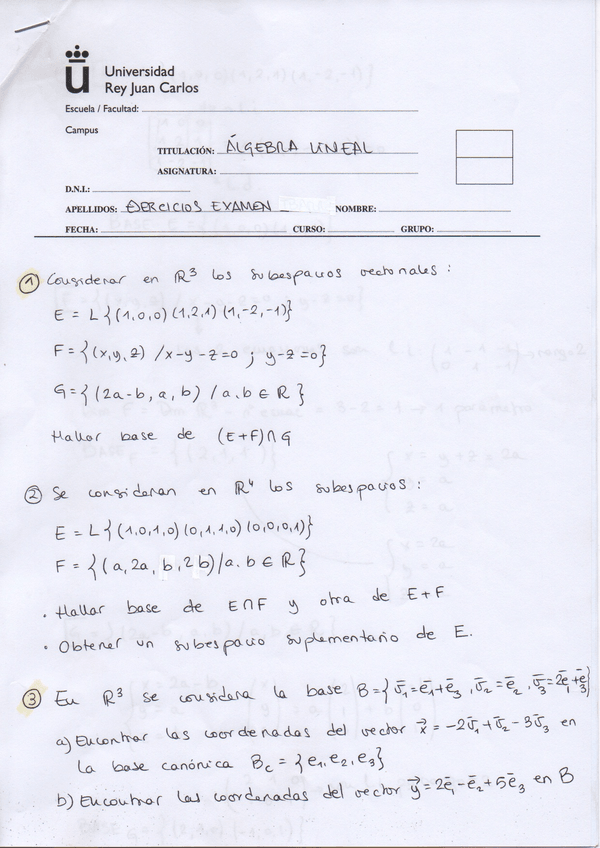 Universidad
Rey Juan Carlos
Escuela / Facultad:
Campus
TITULACIÓN: ÁLGEBRA LINEAL
ASIGNATURA:
D.N.I.:
APELLIDOS: EJERCICIOS EXAMEN NOMBRE:
FECHA: CURSO: GRUPO:
① Considerar en R³ los subespacios vectoriales :
E = L{(1,0,0)(1,2,1)(1,-2,-1)}
F = {(x,y,z) / x-y-z=0 ; y-z=0}
G = {(2a-b, a, b) / a,b ∈ R}
Hallar base de (E+F)∩G
② Se consideran en R⁴ los subespacios :
E = L{(1,0,1,0)(0,1,1,0)(0,0,0,1)}
F = {(a, 2a, b, 2b) / a,b ∈ R}
· Hallar base de E∩F y otra de E+F
· Obtener un subespacio suplementario de E.
③ En R³ se considera la base B={v̄₁=ē₁+ē₃, v̄₂=ē₂, v̄₃=2ē₁+ē₃}
a) Encontrar las coordenadas del vector x⃗ = -2v̄₁+v̄₂-3v̄₃ en
la base canónica Bc = {e₁, e₂, e₃}
b) Encontrar las coordenadas del vector y⃗=2ē₁-ē₂+5ē₃ en B